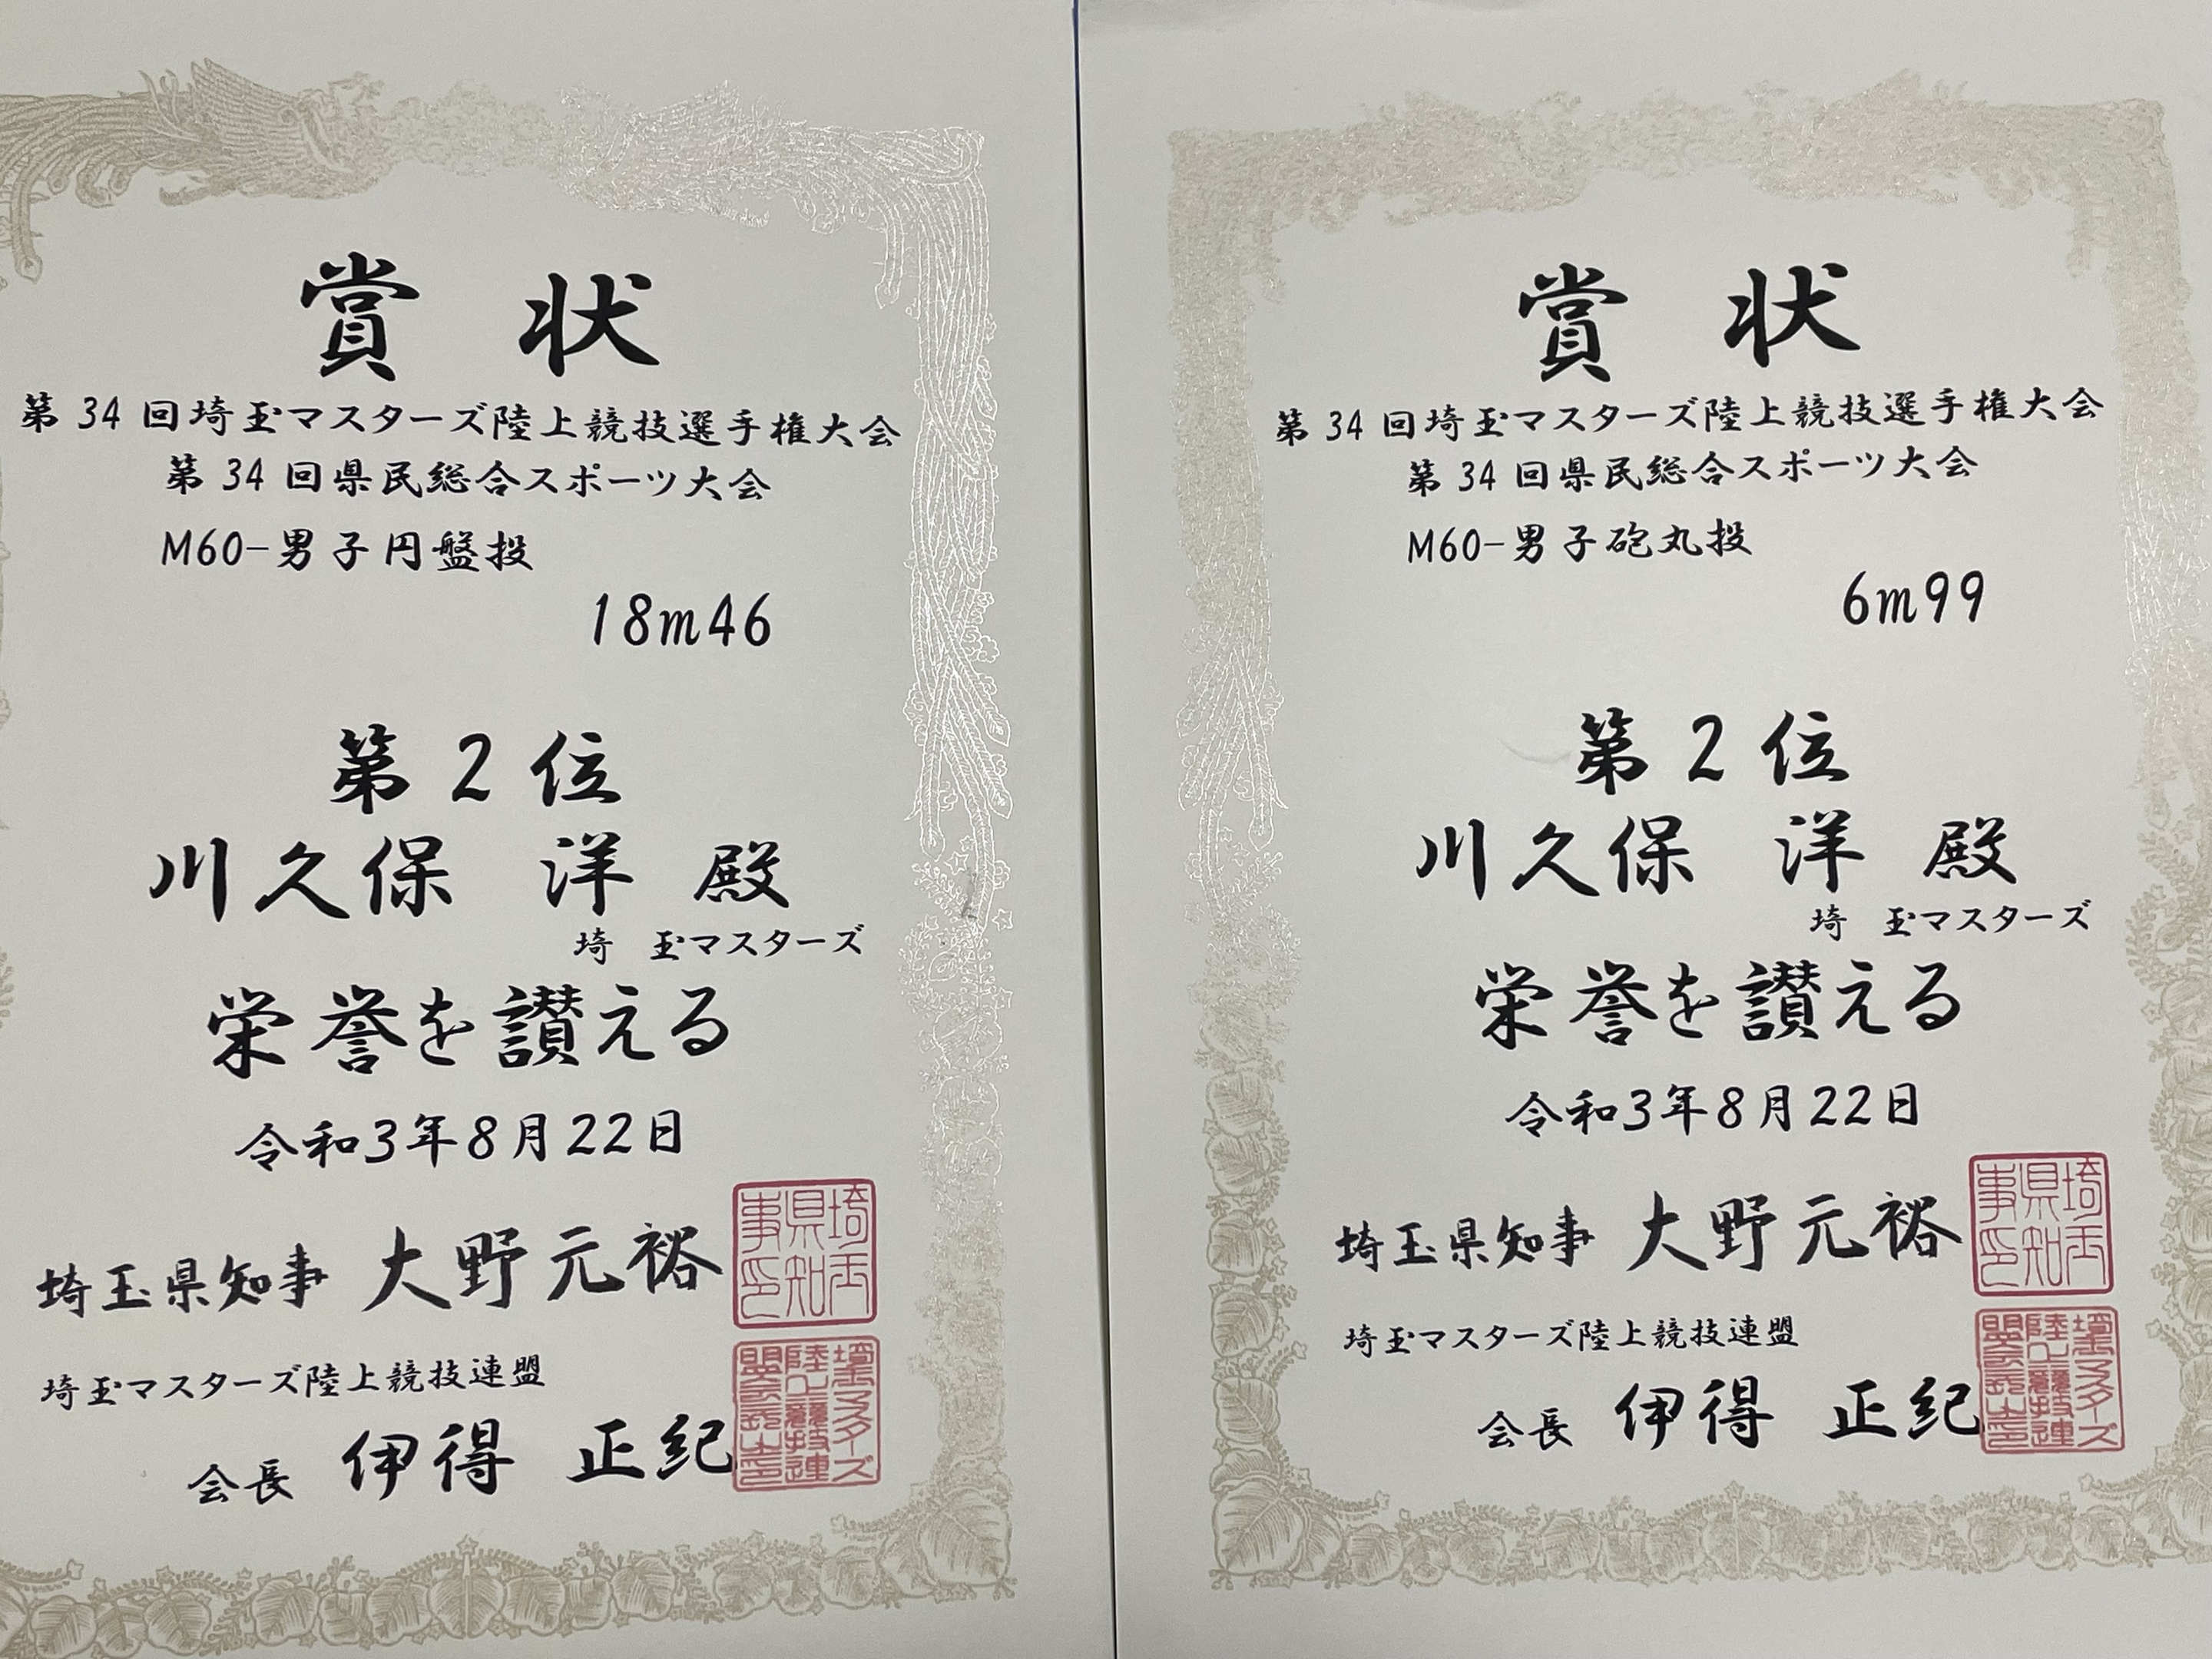 賞状
第34回埼玉マスターズ陸上競技選手権大会
第34回県民総合スポーツ大会
M60-男子円盤投
18m46
第2位
川久保 洋 殿
埼 玉マスターズ
栄誉を讃える
令和3年8月22日
埼玉県知事 大野元裕
埼玉県知事印
埼玉マスターズ陸上競技連盟
会長 伊得 正紀
賞状
第34回埼玉マスターズ陸上競技選手権大会
第34回県民総合スポーツ大会
M60-男子砲丸投
6m99
第2位
川久保 洋 殿
埼 玉マスターズ
栄誉を讃える
令和3年8月22日
埼玉県知事 大野元裕
埼玉県知事印
埼玉マスターズ陸上競技連盟
会長 伊得 正紀